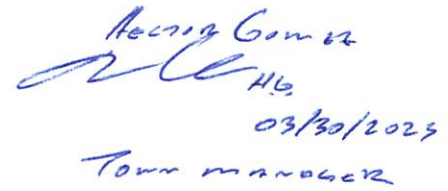 Hector Gomez
HG
03/30/2023
Town manager